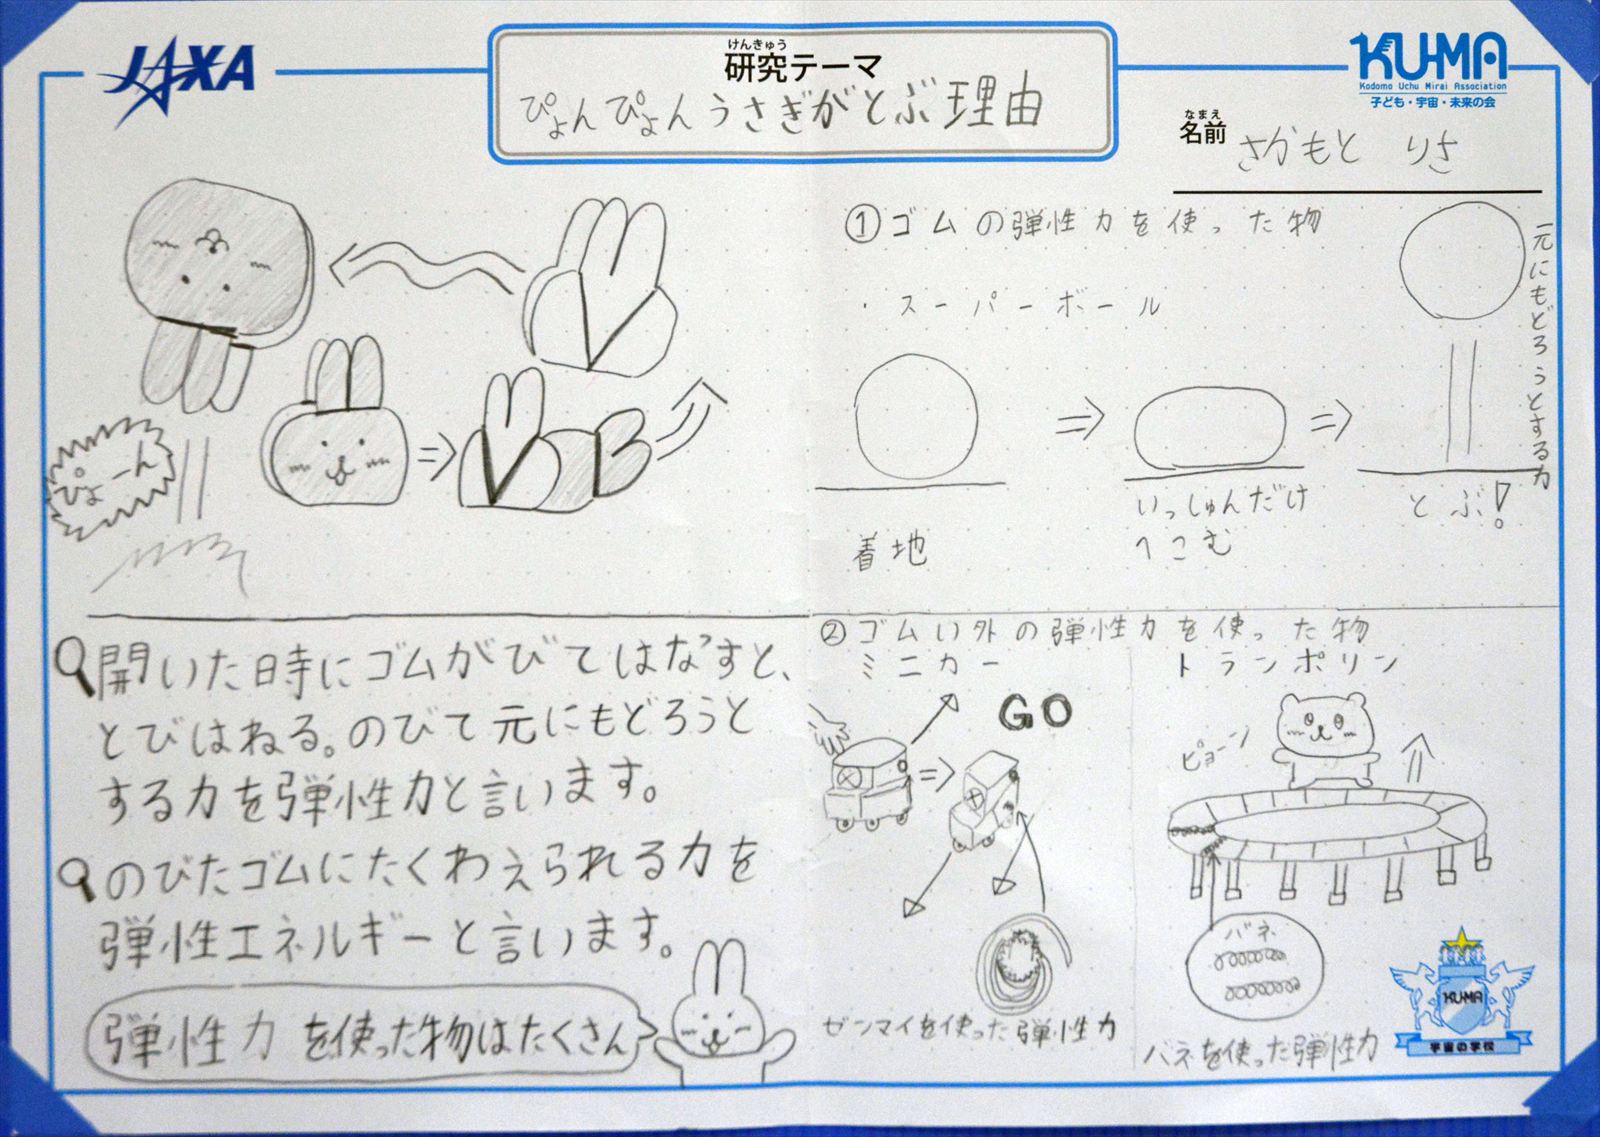 JAXA
けんきゅう
研究テーマ
ぴょんぴょんうさぎがとぶ理由
KUMA
Kodomo Uchu Mirai Association
子ども・宇宙・未来の会
なまえ
名前
さかもと りさ
ぴょーん
開いた時にゴムがびてはなすと、
とびはねる。のびて元にもどろうと
する力を弾性力と言います。
のびたゴムにたくわえられる力を
弾性エネルギーと言います。
弾性力を使った物はたくさん
①ゴムの弾性力を使った物
・スーパーボール
元にもどろうとする力
着地
いっしゅんだけ
へこむ
とぶ!
②ゴムい外の弾性力を使った物
ミニカー
GO
ゼンマイを使った弾性力
トランポリン
ピョーン
バネ
バネを使った弾性力
KUMA
宇宙の学校